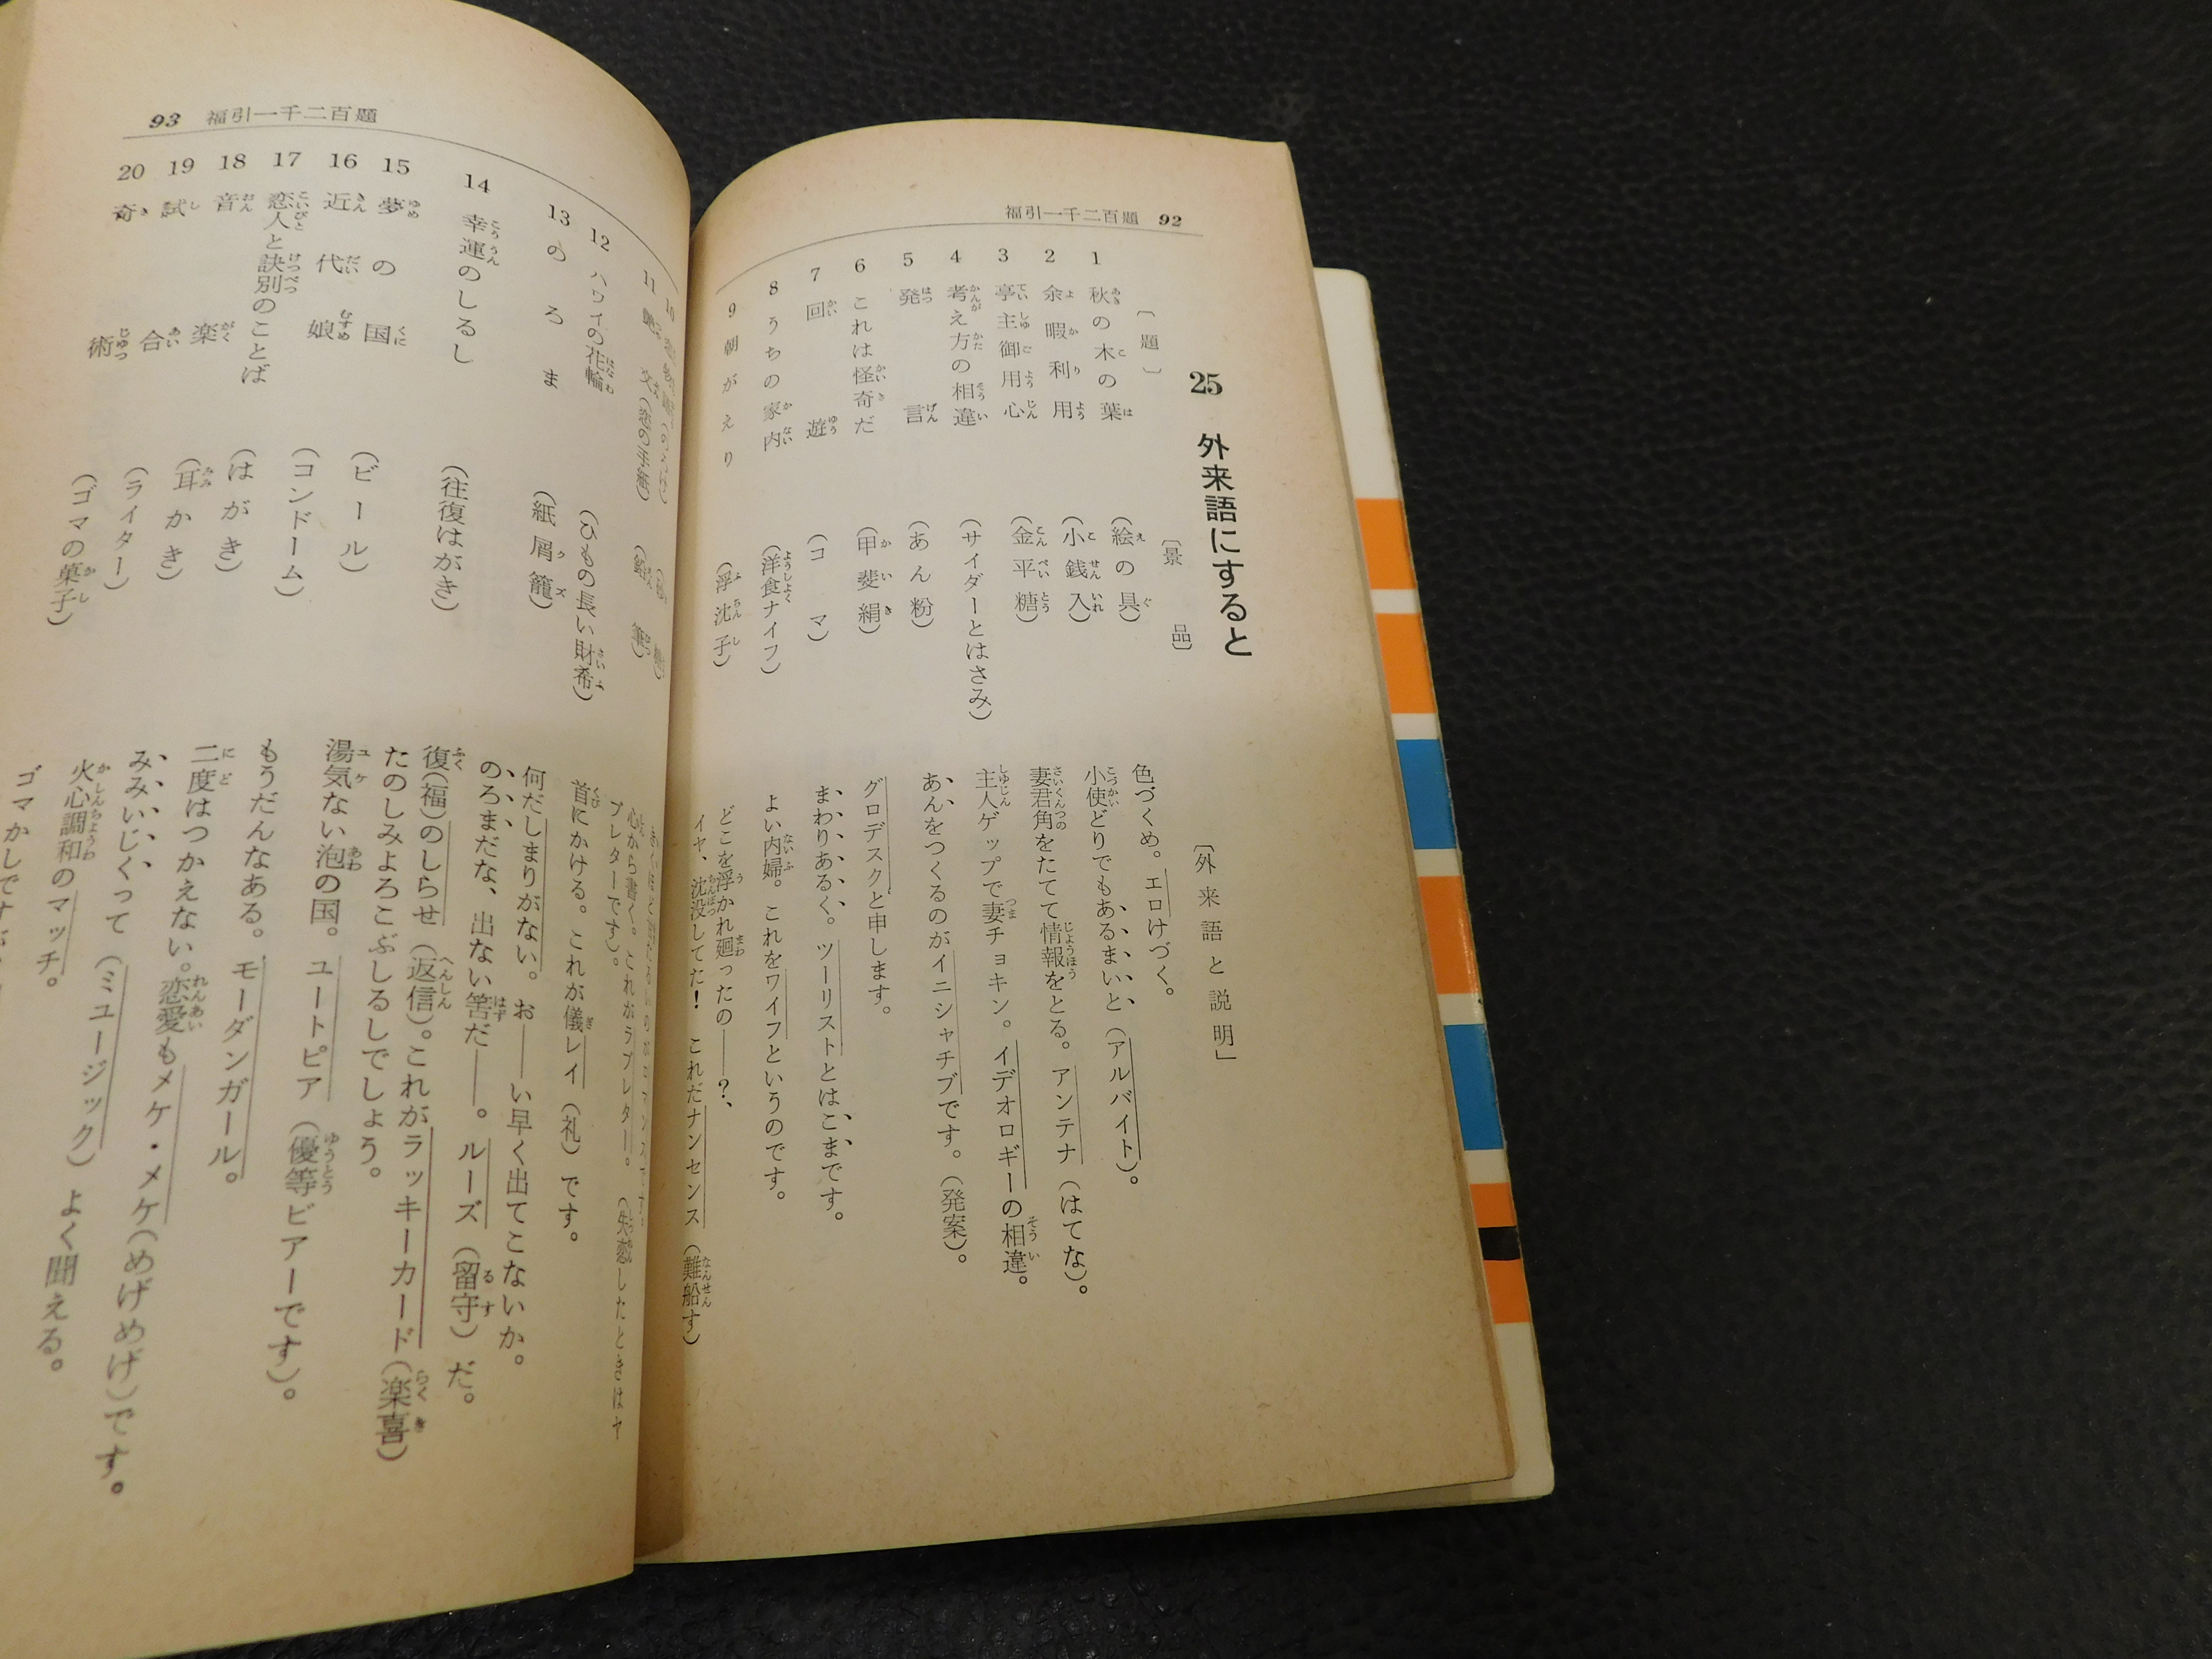 福引一千二百題 92
25 外来語にすると
〔題〕
〔景品〕
〔外来語と説明」
1 秋の木の葉 (絵の具) 色づくめ。エロけづく。
2 余暇利用 (小銭入) 小使どりでもあるまいと(アルバイト)。
3 亭主御用心 (金平糖) 妻君角をたてて情報をとる。アンテナ(はてな)。
4 考え方の相違 (サイダーとはさみ) 主人ゲップで妻チョキン。イデオロギーの相違。
5 発言 (あん粉) あんをつくるのがイニシャチブです。(発案)。
6 これは怪奇だ (甲斐絹) グロデスクと申します。
7 回遊 (コマ) まわりあるく。ツーリストとはこまです。
8 うちの家内 (洋食ナイフ) よい内婦。これをワイフというのです。
9 朝がえり (浮沈子) どこを浮かれ廻ったの――?、
イヤ、沈没してた! これだナンセンス(難船す)
93 福引一千二百題
10
11 文(恋の手紙) 心から書く。これがラブレター。(失恋したときはヤ
ブレターです)。
12 ハワイの花輪 (ひもの長い財布) 首にかける。これが儀レイ(礼)です。
13 のろま (紙屑籠) 何だしまりがない。お――い早く出てこないか。
のろまだな、出ない筈だ――。ルーズ(留守)だ。
14 幸運のしるし (往復はがき) 復(福)のしらせ(返信)。これがラッキーカード(楽喜)
たのしみよろこぶしるしでしょう。
15 夢の国 (ビール) 湯気ない泡の国。ユートピア(優等ビアーです)。
16 近代娘 (コンドーム) もうだんなある。モーダンガール。
17 恋人と訣別のことば (はがき) 二度はつかえない。恋愛もメケ・メケ(めげめげ)です。
18 音楽 (耳かき) みみいじくって(ミュージック)よく聞える。
19 試合 (ライター) 火心調和のマッチ。
20 奇術 (ゴマの菓子) ゴマかしですが